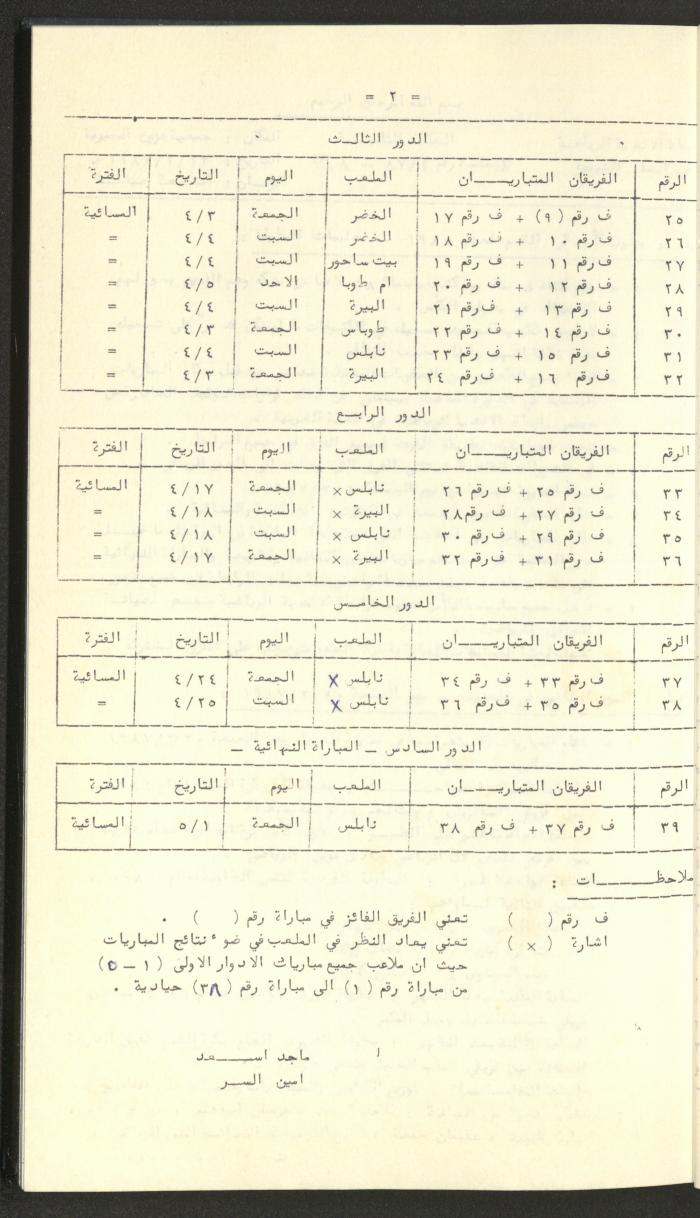 = ٢ =
الدور الثالث
الرقم الفريقان المتباريـــان الملعب اليوم التاريخ الفترة
٢٥ ف رقم (٩) + ف رقم ١٧ الخضر الجمعة ٤/٣ المسائية
٢٦ ف رقم ١٠ + ف رقم ١٨ الخضر السبت ٤/٤ =
٢٧ ف رقم ١١ + ف رقم ١٩ بيت ساحور السبت ٤/٤ =
٢٨ ف رقم ١٢ + ف رقم ٢٠ ام طوبا الاحد ٤/٥ =
٢٩ ف رقم ١٣ + ف رقم ٢١ البيرة السبت ٤/٤ =
٣٠ ف رقم ١٤ + ف رقم ٢٢ طوباس الجمعة ٤/٣ =
٣١ ف رقم ١٥ + ف رقم ٢٣ نابلس السبت ٤/٤ =
٣٢ ف رقم ١٦ + ف رقم ٢٤ البيرة الجمعة ٤/٣ =
الدور الرابع
الرقم الفريقان المتباريـــان الملعب اليوم التاريخ الفترة
٣٣ ف رقم ٢٥ + ف رقم ٢٦ نابلس × الجمعة ٤/١٧ المسائية
٣٤ ف رقم ٢٧ + ف رقم ٢٨ البيرة × السبت ٤/١٨ =
٣٥ ف رقم ٢٩ + ف رقم ٣٠ نابلس × السبت ٤/١٨ =
٣٦ ف رقم ٣١ + ف رقم ٣٢ البيرة × الجمعة ٤/١٧ =
الدور الخامس
الرقم الفريقان المتباريـــان الملعب اليوم التاريخ الفترة
٣٧ ف رقم ٣٣ + ف رقم ٣٤ نابلس × الجمعة ٤/٢٤ المسائية
٣٨ ف رقم ٣٥ + ف رقم ٣٦ نابلس × السبت ٤/٢٥ =
الدور السادس ـ المباراة النهائية ـ
الرقم الفريقان المتباريـــان الملعب اليوم التاريخ الفترة
٣٩ ف رقم ٣٧ + ف رقم ٣٨ نابلس الجمعة ٥/١ المسائية
ملاحظـــات :
ف رقم ( ) تعني الفريق الفائز في مباراة رقم ( ) .
اشارة ( × ) تعني يعاد النظر في الملعب في ضوء نتائج المباريات
حيث ان ملاعب جميع مباريات الادوار الاولى (١ – ٥)
من مباراة رقم (١) الى مباراة رقم (٣٨) حيادية .
ماجد اســـعد
امين الســر